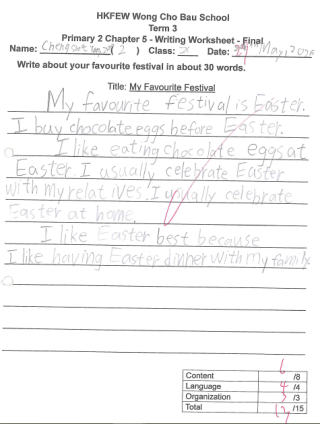 HKFEW Wong Cho Bau School
Term 3
Primary 2 Chapter 5 - Writing Worksheet - Final
Name: ( 2 ) Class: Date: May,
Write about your favourite festival in about 30 words.
Title: My Favourite Festival
My favourite festival is Easter.
I buy chocolate eggs before Easter.
I like eating chocolate eggs at
Easter. I usually celebrate Easter
with my relatives. I usually celebrate
Easter at home.
I like Easter best because
I like having Easter dinner with my family
Content 6 /8
Language 4 /4
Organization 3 /3
Total /15